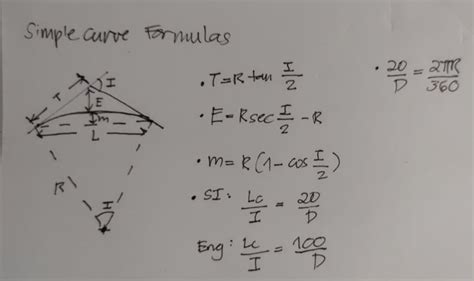 Simple curve Formulas
T
I
E
m
L
R
I
• T = R tan I/2
• E = R sec I/2 - R
• m = R (1 - cos I/2)
• SI: Lc/I = 20/D
Eng: Lc/I = 100/D
• 20/D = 2πR/360